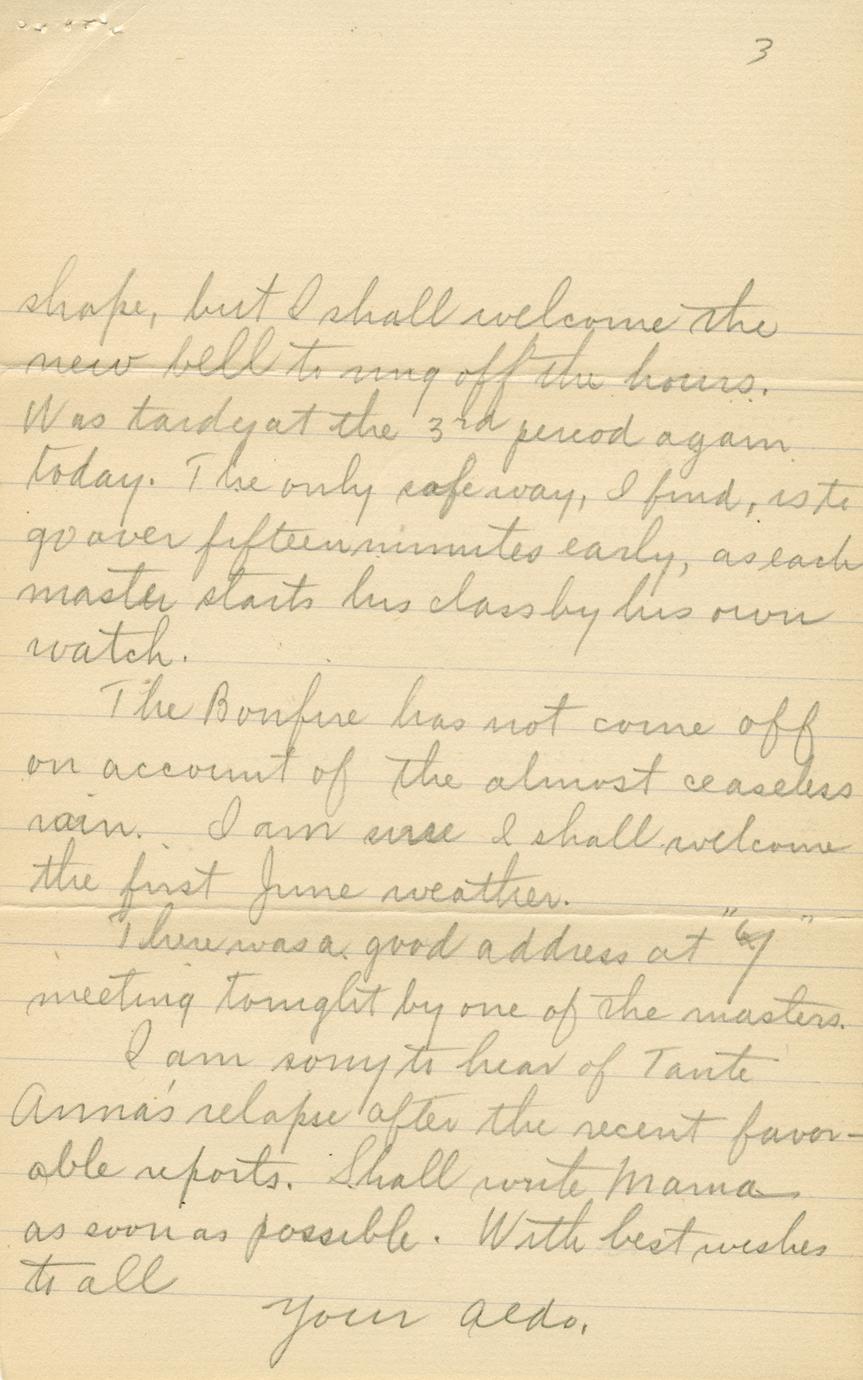 3
shape, but I shall welcome the
new bell to ring off the hours.
Was tardy at the 3rd period again
today. The only safe way, I find, is to
go over fifteen minutes early, as each
master starts his class by his own
watch.
The Bonfire has not come off
on account of the almost ceaseless
rain. I am sure I shall welcome
the first June weather.
There was a good address at " "
meeting tonight by one of the masters.
I am sorry to hear of Tante
Anna's relapse after the recent favor-
able reports. Shall write Mama
as soon as possible. With best wishes
to all
Your Aldo.